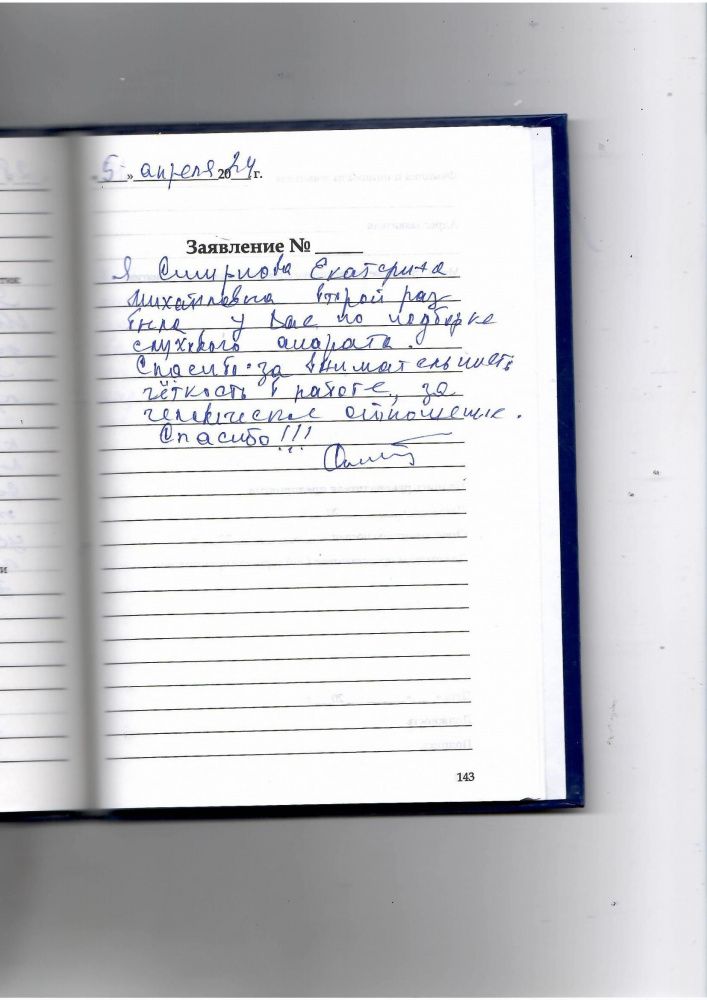 «5» апреля 2024 г.
Заявление № ____
Я Смирнова Екатерина
Михайловна второй раз
была у Вас по подборке
слухового апарата.
Спасибо за внимательность
чёткость в работе, за
человеческое отношение.
Спасибо!!!
143